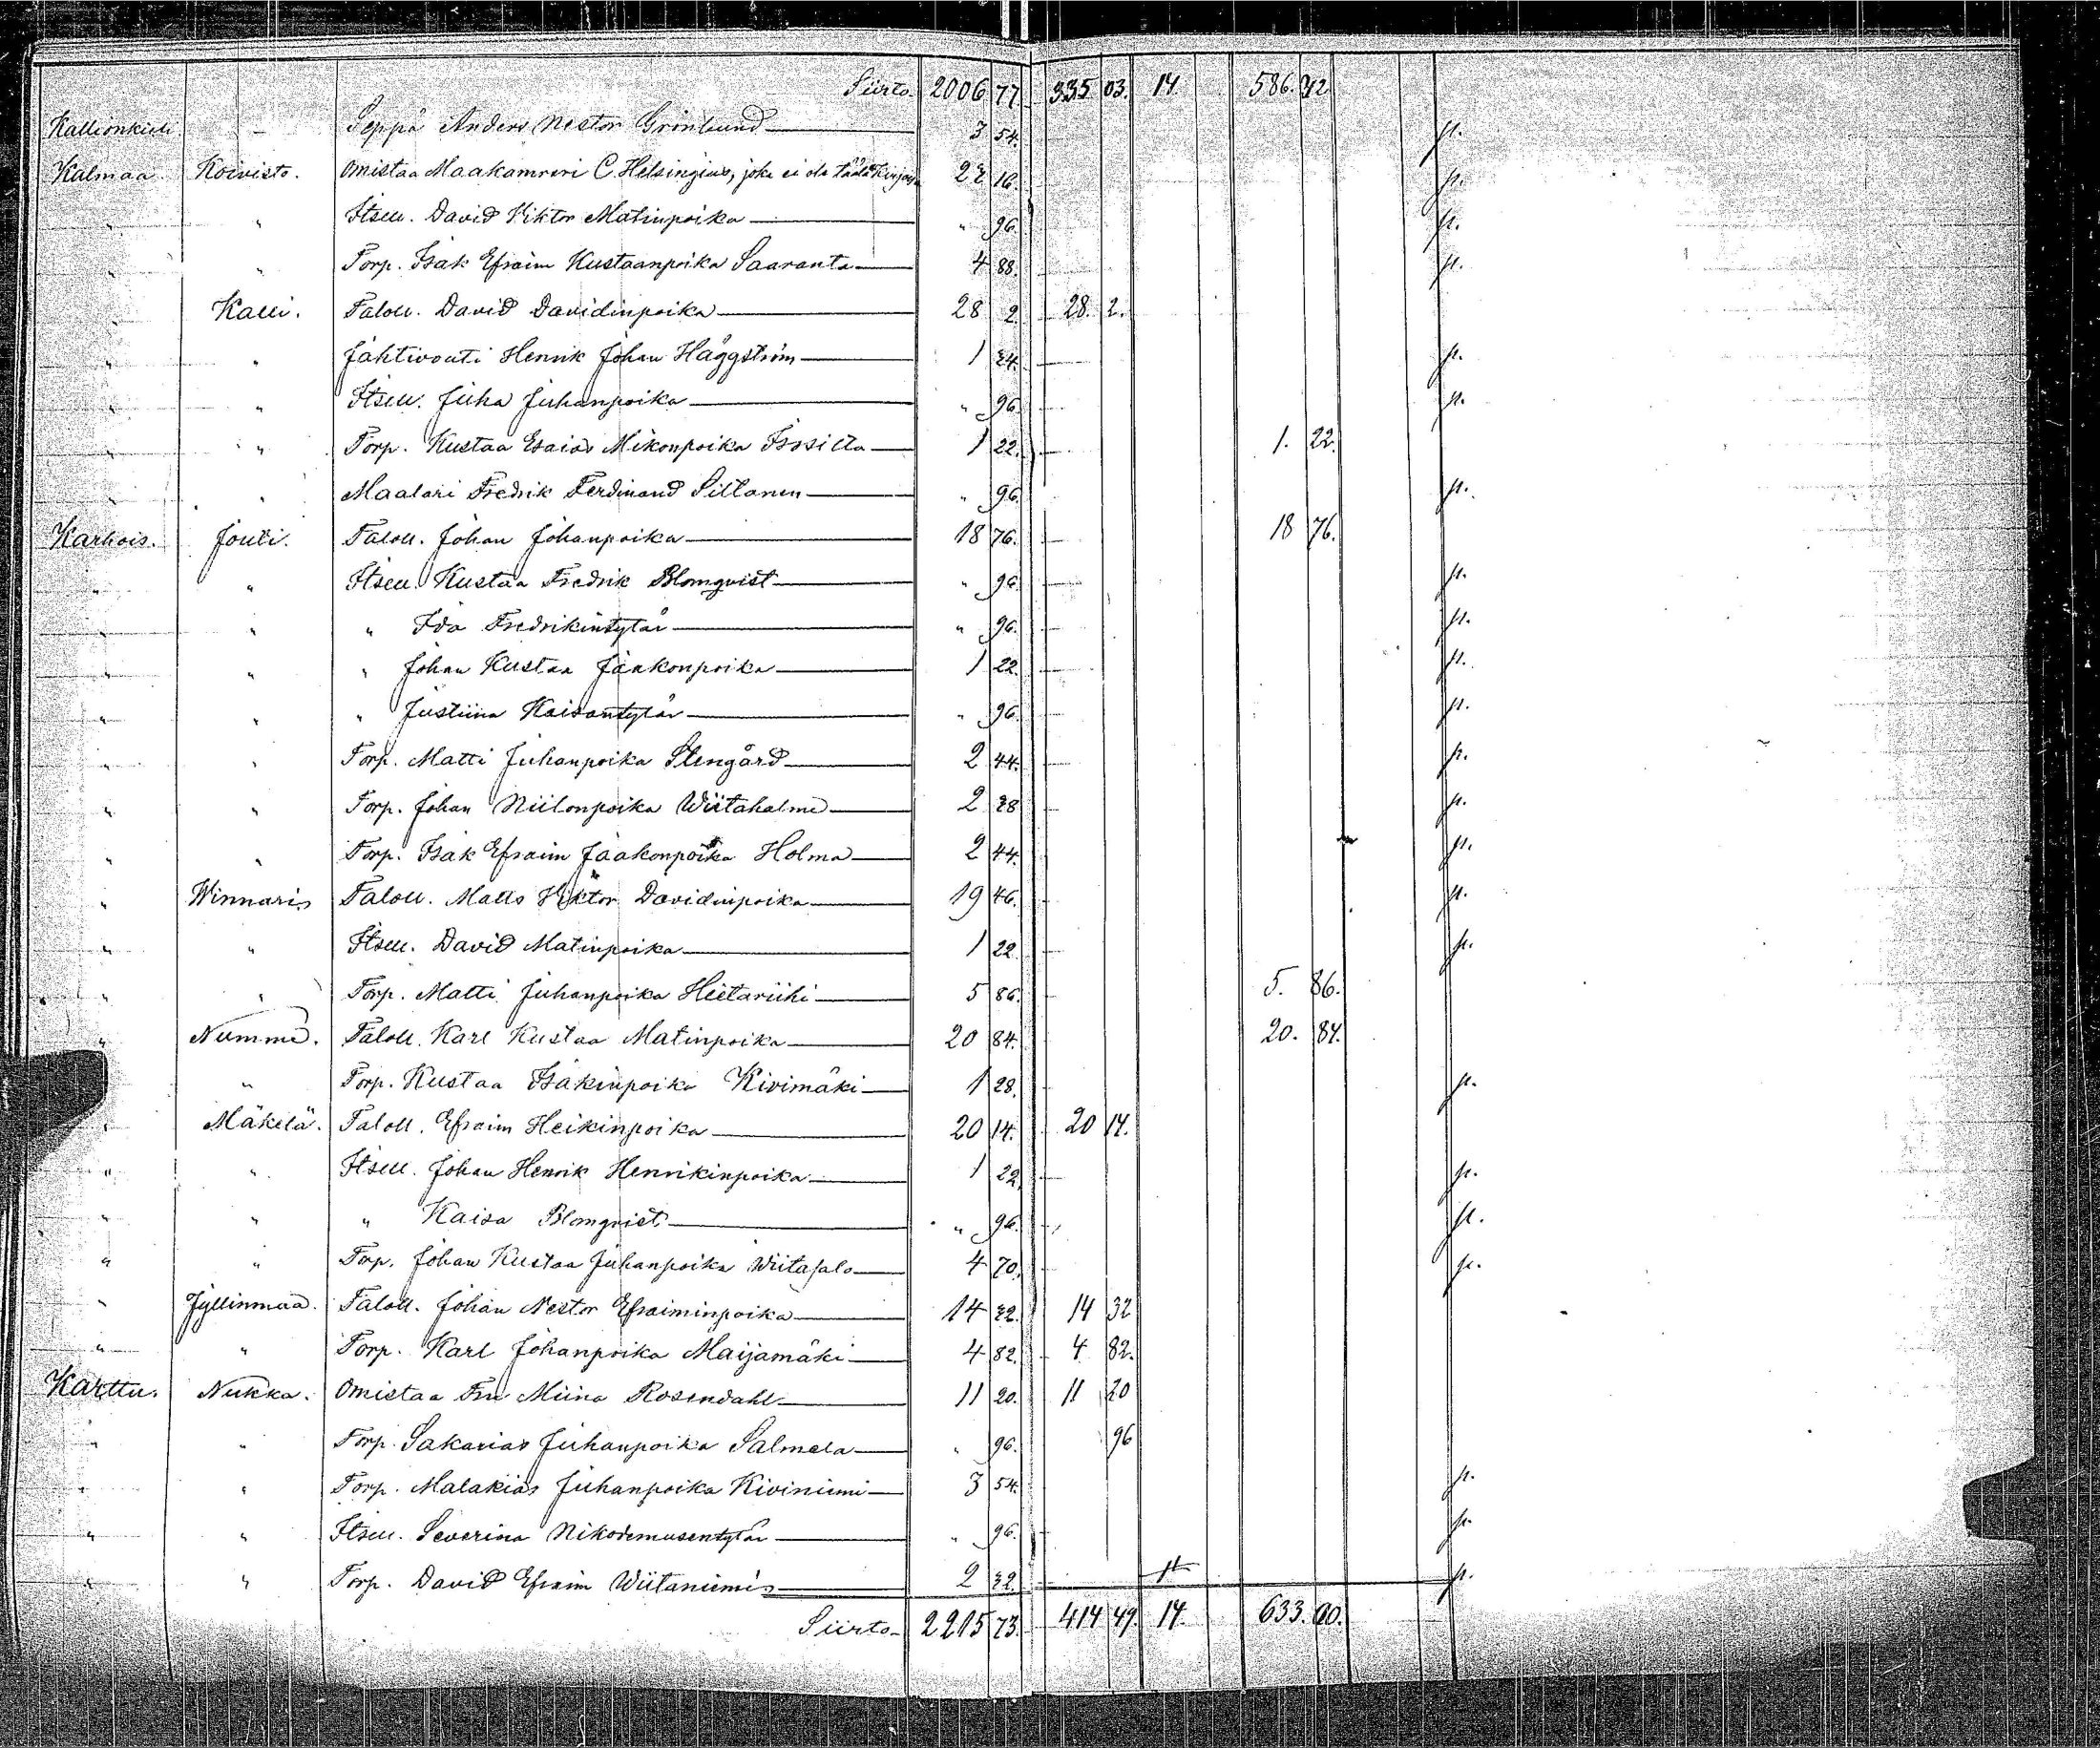 Siirto 2006 77. 335 03. 14. 586. 42
Kallionkieli Seppä Anders Nestor Grönlund 3 54. p.
Kalmaa. Koivisto. Omistaa Maakamreri C. Helsingius, joka ei ole täälä kirjoissa 22 16. p.
" " Itsell. David Viktor Matinpoika " 96. p.
" " Torp. Isak Efraim Kustaanpoika Saaranta 4 88. p.
" Kalli. Taloll. David Davidinpoika 28 2. 28. 2.
" " Jahtivouti Henrik Johan Häggström 1 24. p.
" " Itsell. Juha Juhanpoika " 96. p.
" " Torp. Kustaa Esaias Mikonpoika Isosilta 1 22. 1. 22.
" " Maalari Fredrik Ferdinand Siltanen " 96. p.
Karhois. Jouti. Taloll. Johan Johanpoika 18 76. 18 76.
" " Itsell. Kustaa Fredrik Blomqvist " 96. p.
" " " Ida Fredrikintytär " 96. p.
" " " Johan Kustaa Jaakonpoika 1 22. p.
" " " Justiina Kaisantytär " 96. p.
" " Torp. Matti Juhanpoika Stengård 2 44. p.
" " Torp. Johan Niilonpoika Wiitahalme 2 28 p.
" " Torp. Isak Efraim Jaakonpoika Holma 2 44. p.
" Winnaris Taloll. Matts Viktor Davidinpoika 19 46. p.
" " Itsell. David Matinpoika 1 22 p.
" " Torp. Matti Juhanpoika Hietariihi 5 86. 5. 86.
" Nummi. Taloll. Karl Kustaa Matinpoika 20 84. 20. 84.
" Torp. Kustaa Isakinpoika Kivimäki 1 28. p.
" Mäkelä. Taloll. Efraim Heikinpoika 20 14. 20 14.
" " Itsell. Johan Henrik Henrikinpoika 1 22, p.
" " " Kaisa Blomqvist " 96. p.
" " Torp. Johan Kustaa Juhanpoika Wiitasalo 4 70. p.
" Jyllinmaa. Taloll. Johan Nestor Efraiminpoika 14 32. 14 32
" " Torp. Karl Johanpoika Maijamäki 4 82. 4 82.
Karttu. Nukka. Omistaa Fru Miina Rosendahl 11 20. 11 20
" " Torp. Sakarias Juhanpoika Salmela " 96. 96
" " Torp. Malakias Juhanpoika Kiviniemi 3 54. p.
" " Itsell. Severina Nikodemusentytär " 96. p.
" " Torp. David Efraim Wiitaniemi 2 32. p.
Siirto 2215 73. 414 49. 14. 633. 10.